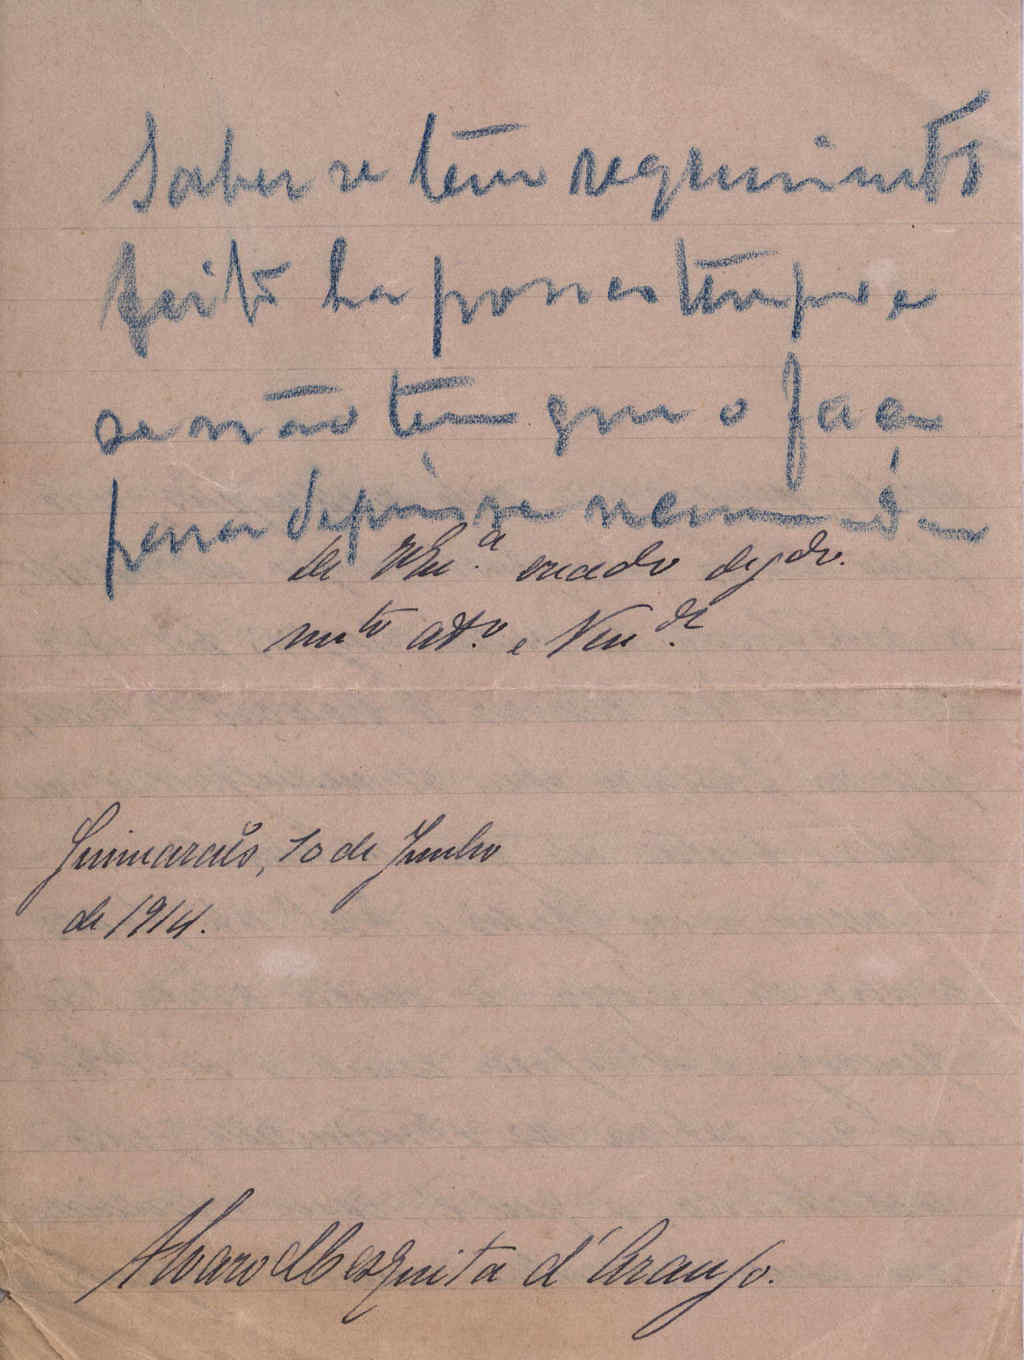 Saber se tem requerimento
feito ha pouco tempo e
se não tem que o faça
para depois se recommendar
de V. Ex.ª creado
mto att.º e Ven.dr
Guimarães, 10 de Junho
de 1914.
Alvaro Mesquita d'Araujo.